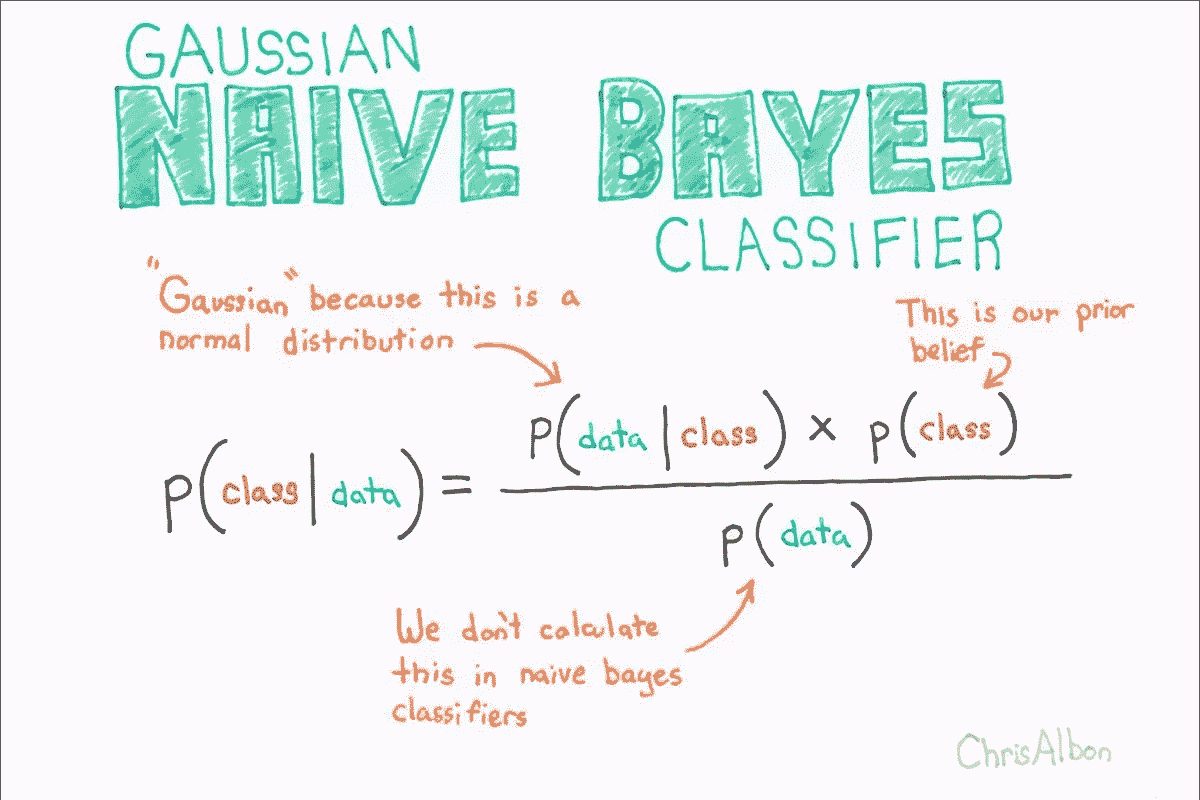 GAUSSIAN
NAIVE BAYES
CLASSIFIER
"Gaussian" because this is a
normal distribution
This is our prior
belief
p(class|data) =
p(data|class) × p(class)
p(data)
We don't calculate
this in naive bayes
classifiers
ChrisAlbon